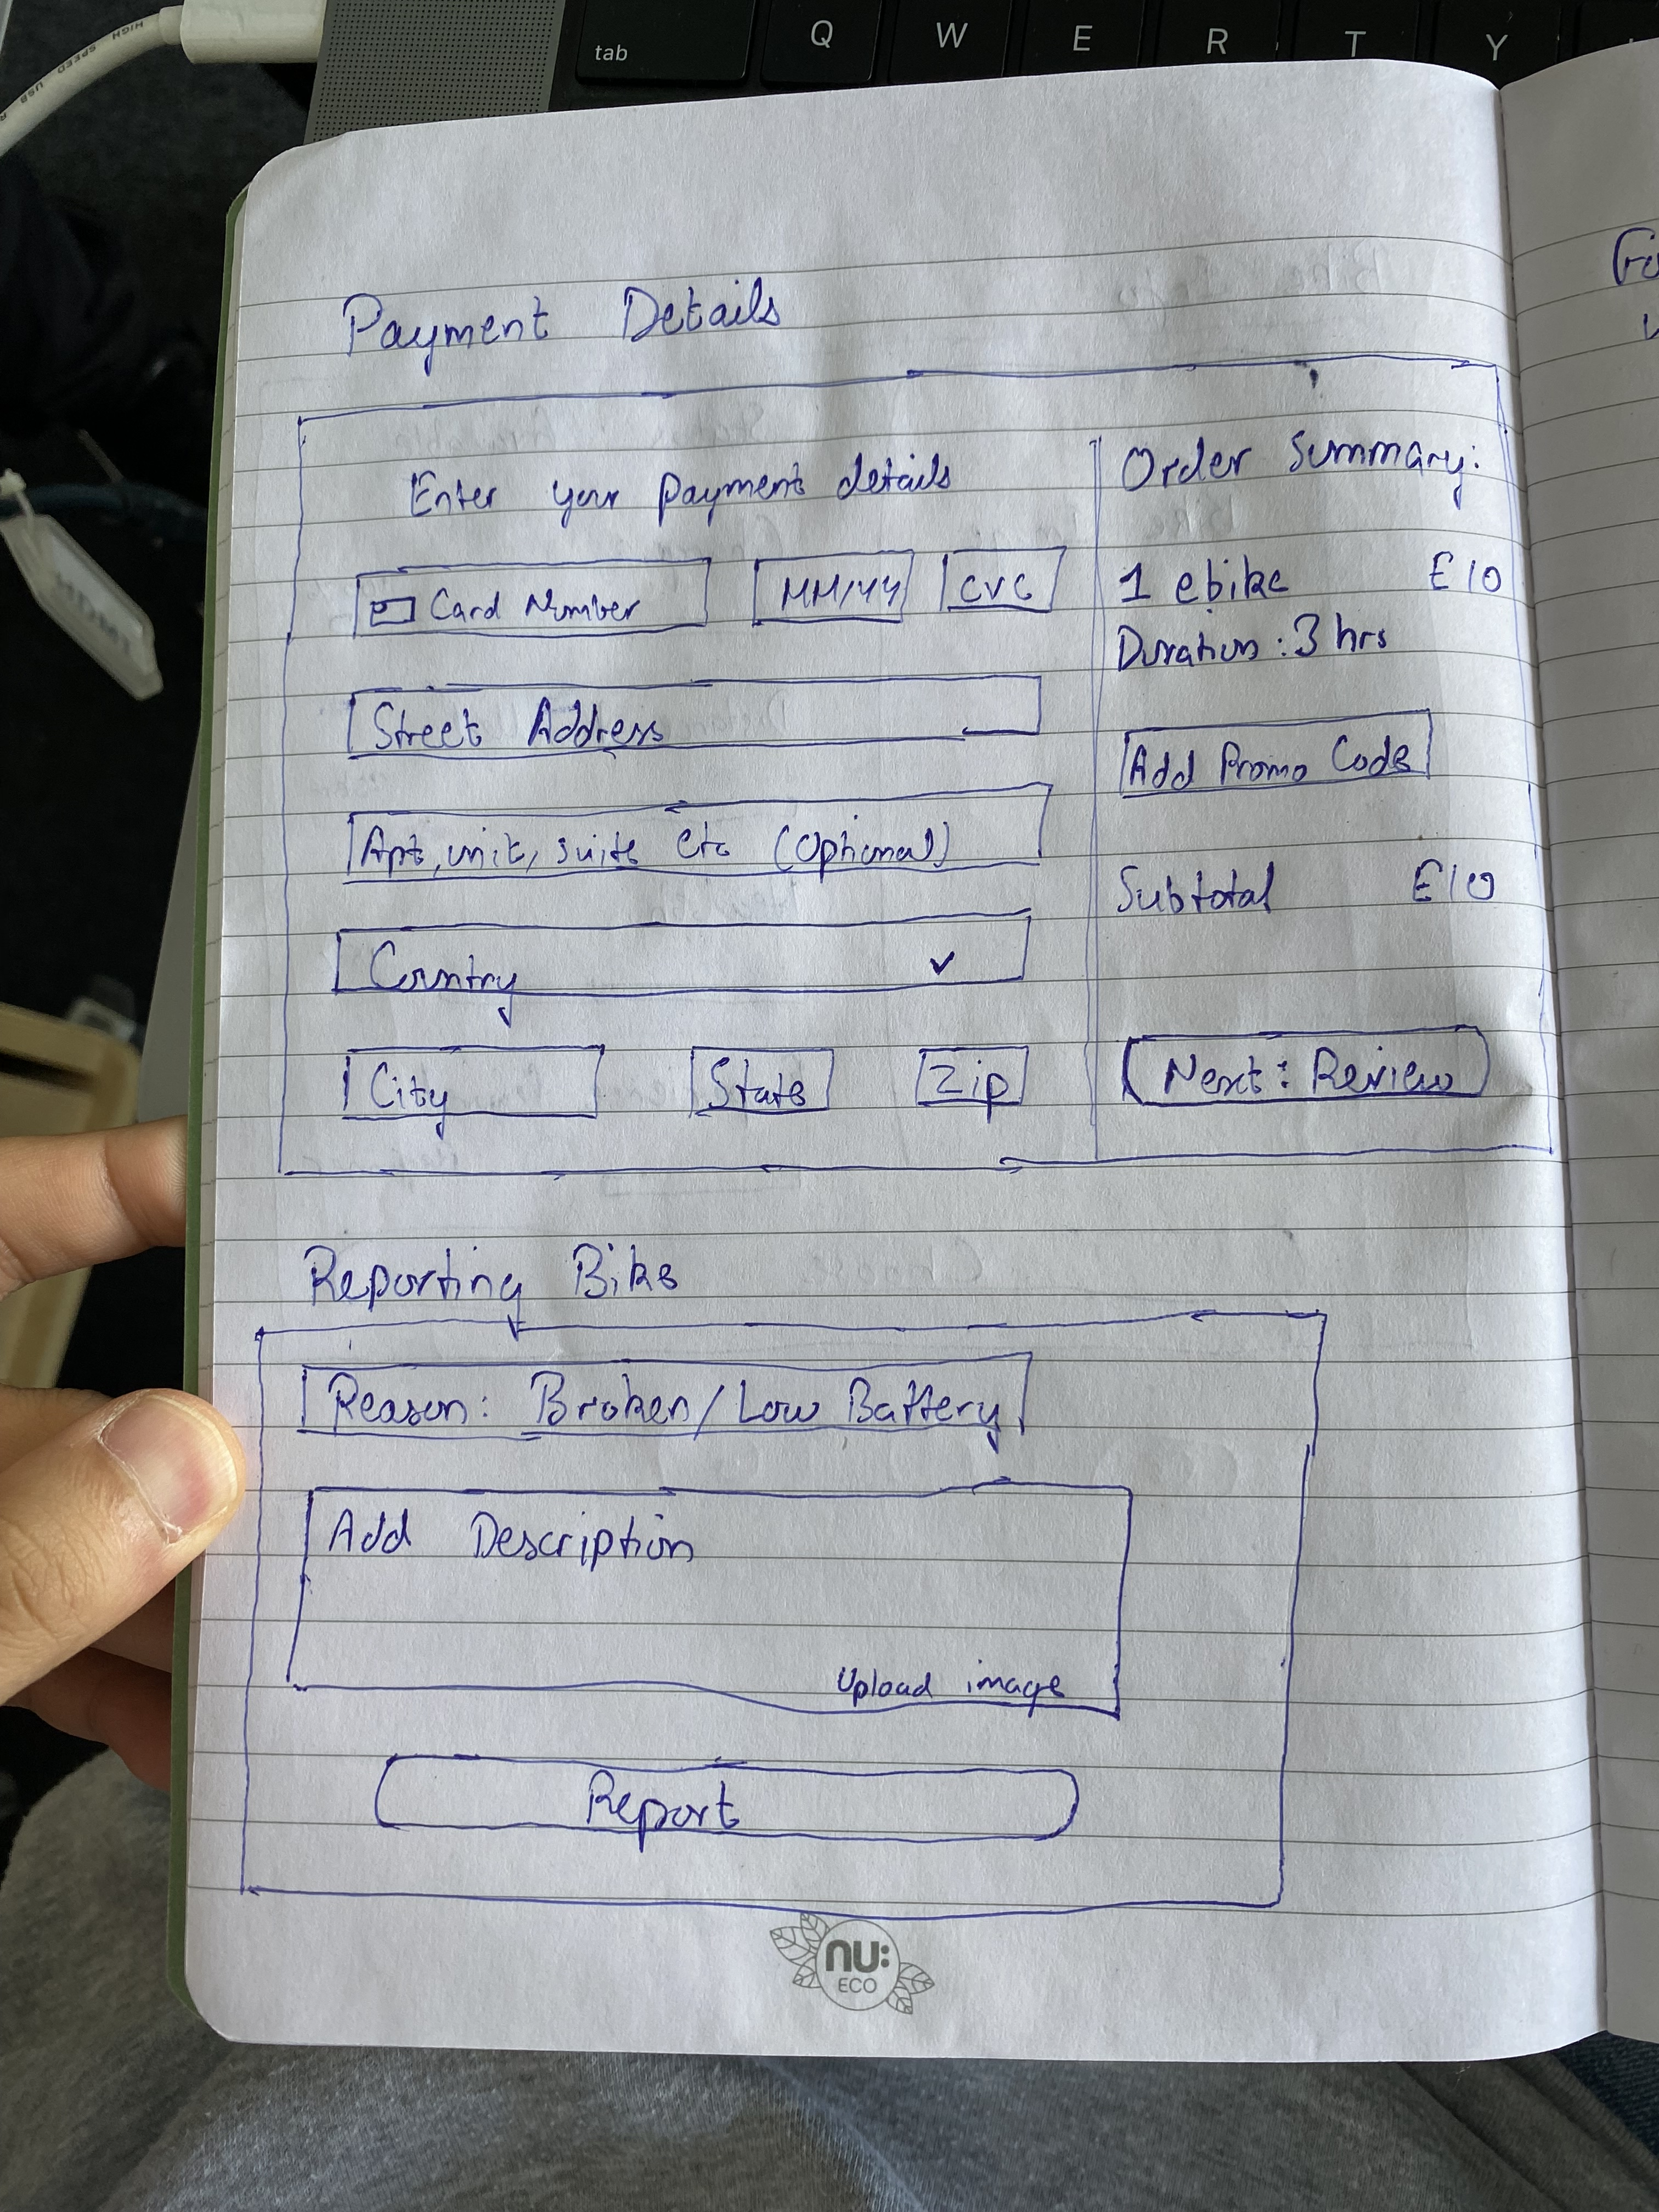 tab
Q
W
E
R
T
Y
HIGH SPEED
USB
Payment Details
Enter your payment details
Card Number
MM/YY
CVC
Street Address
Apt, unit, suite etc (Optional)
Country
City
State
Zip
Order Summary:
1 ebike £10
Duration: 3 hrs
Add Promo Code
Subtotal £10
Next: Review
Reporting Bike
Reason: Broken/Low Battery
Add Description
Upload image
Report
nu:
ECO